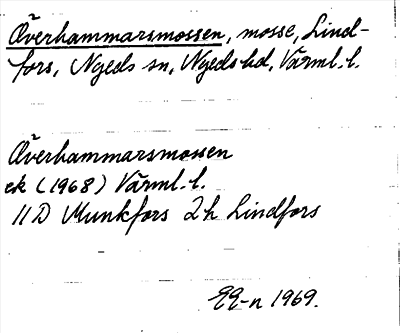 Överhammarsmossen, mosse, Lind-
fors, Nyeds sn, Nyeds hd, Värml. l.
Överhammarsmossen
ek (1968) Värml. l.
11D Munkfors 2h Lindfors
1969.